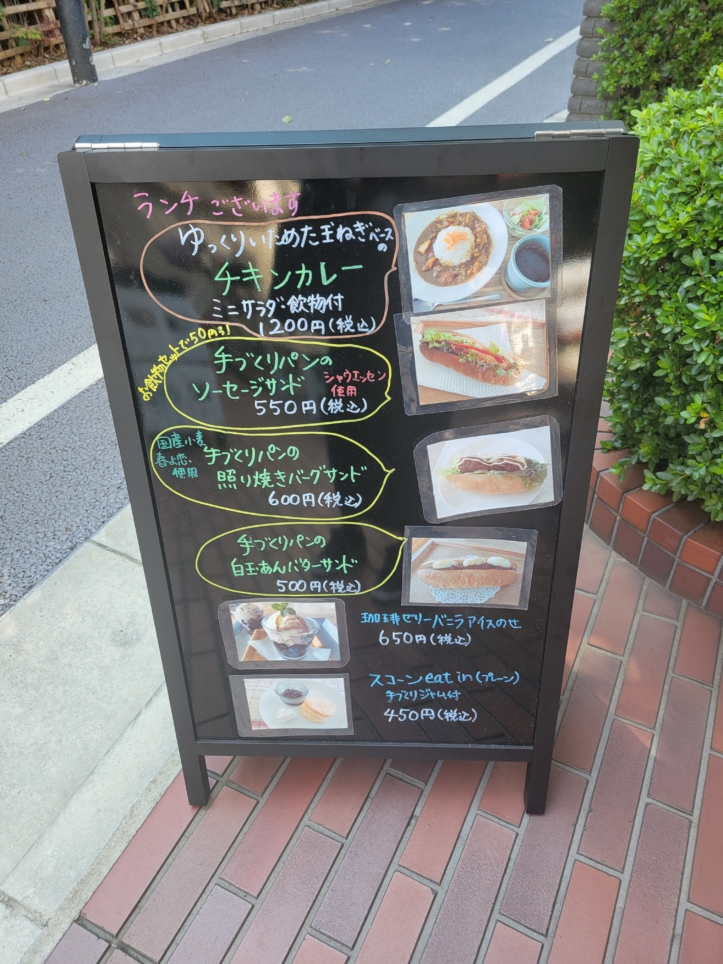 ランチ ございます
ゆっくりいためた玉ねぎベースの
チキンカレー
ミニサラダ・飲物付
1200円(税込)
お飲物セットで50円引!
手づくりパンの
ソーセージサンド
シャウエッセン
使用
550円(税込)
国産小麦
春よ恋、
使用
手づくりパンの
照り焼きバーグサンド
600円(税込)
手づくりパンの
白玉あんバターサンド
500円(税込)
珈琲ゼリーバニラアイスのせ
650円(税込)
スコーン eat in (プレーン)
手づくりジャム付
450円(税込)